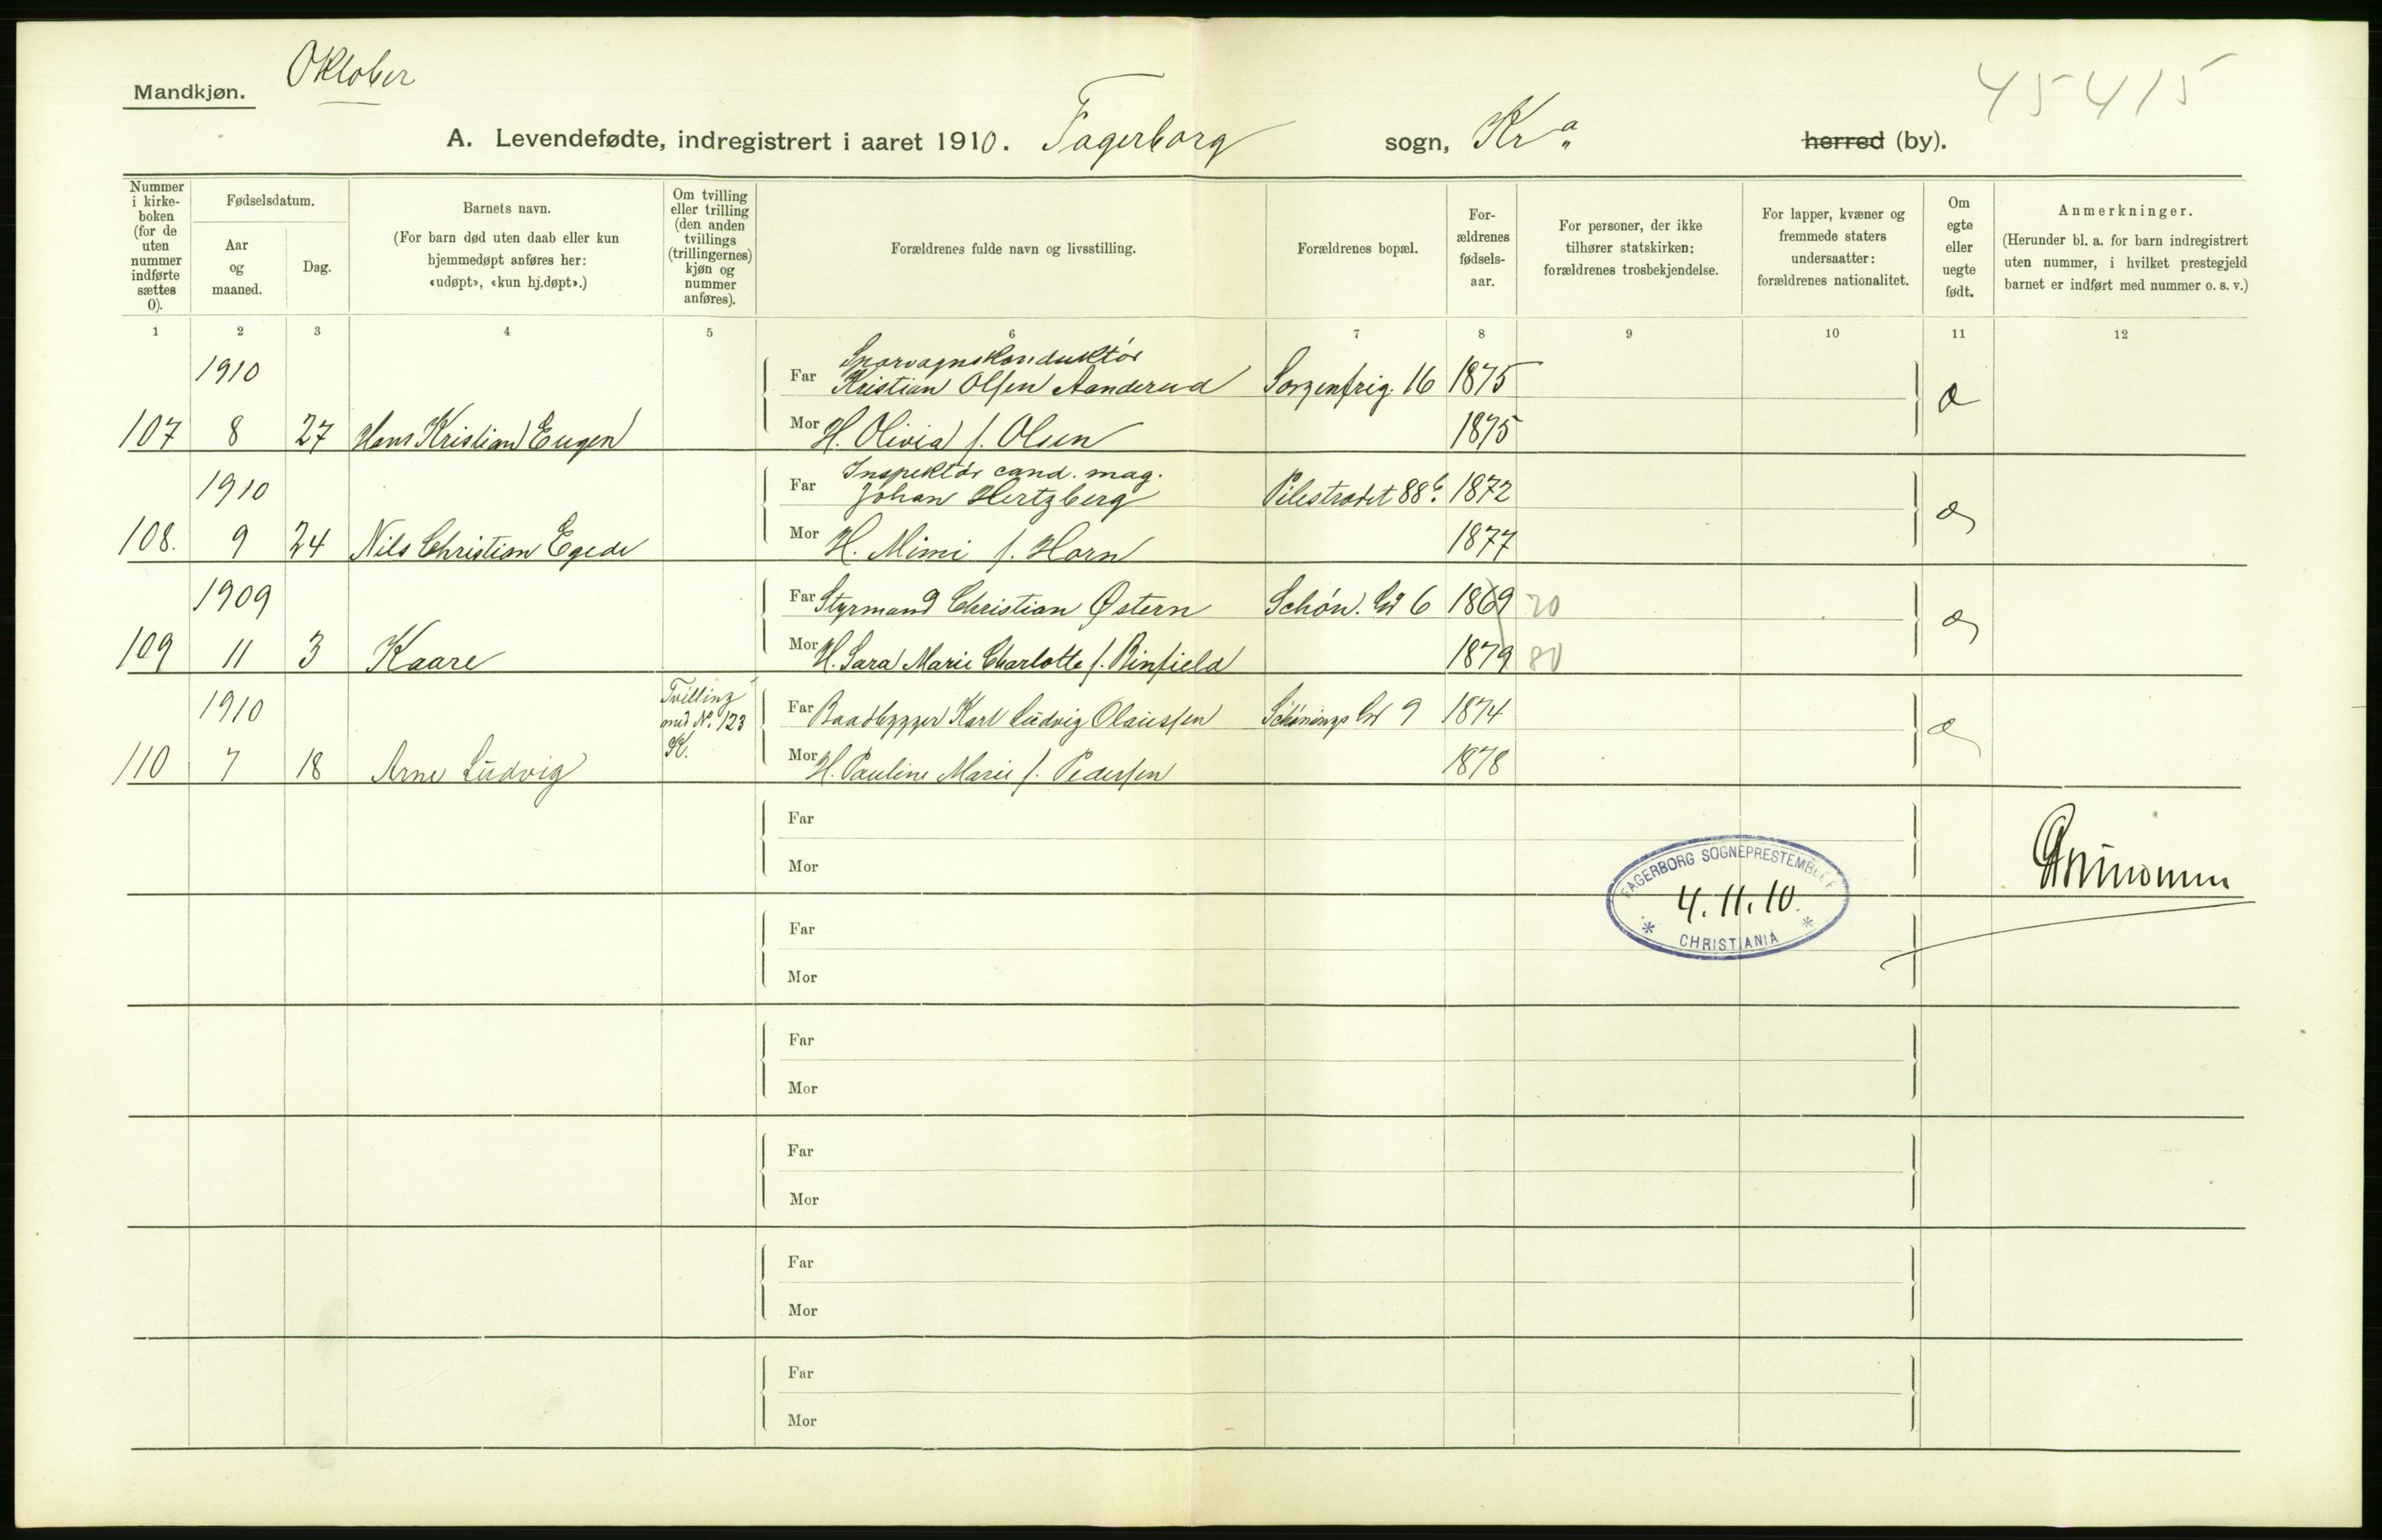 Oktober
45415
Mandkjøn.
A. Levendefødte, indregistrert i aaret 1910. Fagerborg sogn, Kra herred (by).
Nummer i kirke-boken (for de uten nummer indførte sættes 0).
Fødselsdatum.
Aar og maaned.
Dag.
Barnets navn.
(For barn død uten daab eller kun hjemmedøpt anføres her: «udøpt», «kun hj.døpt».)
Om tvilling eller trilling (den anden tvillings (trillingernes) kjøn og nummer anføres).
Forældrenes fulde navn og livsstilling.
Forældrenes bopæl.
For-ældrenes fødsels-aar.
For personer, der ikke tilhører statskirken: forældrenes trosbekjendelse.
For lapper, kvæner og fremmede staters undersaatter: forældrenes nationalitet.
Om egte eller uegte født.
Anmerkninger.
(Herunder bl. a. for barn indregistrert uten nummer, i hvilket prestegjeld barnet er indført med nummer o. s. v.)
1 2 3 4 5 6 7 8 9 10 11 12
Sporvagnskonduktør
1910 Far Kristian Olsen Aanderud Sorgenfrig. 16 1875 æ
107 8 27 Hans Kristian Eugen Mor H. Olivia f. Olsen 1875
Inspektør cand. mag.
1910 Far Johan Hertzberg Pilestrædet 88b. 1872 æ
108. 9 24 Nils Christian Egede Mor H. Mimi f. Horn 1877
1909 Far Styrmand Christian Østern Schøn. Gd 6 1869 70 æ
109 11 3 Kaare Mor H. Sara Marie Charlotte f. 1879 80
Tvilling
1910 med No. 123 Far Baadbygger Karl Ludvig Olaussen Schønings Gd 9 1874 æ
K.
110 7 18 Arne Ludvig Mor H. Pauline Marie f. Pedersen 1878
Far
Mor
FAGERBORG SOGNEPRESTEMBEDE
4.11.10.
CHRISTIANIA
Far
Mor
Far
Mor
Far
Mor
Far
Mor
Far
Mor